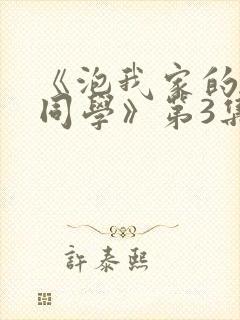 《泡我家的
同學》第3集
許泰熙